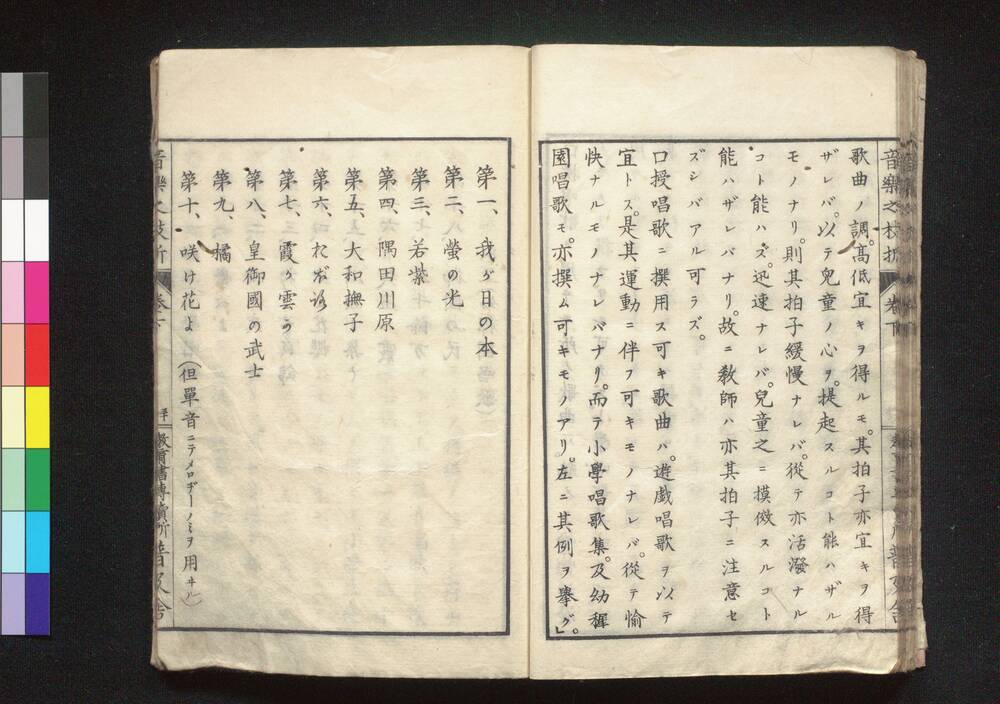 歌曲ノ調。高低宜キヲ得ルモ。其拍子亦宜キヲ得
ザレバ。以テ兒童ノ心ヲ。提起スルコト能ハザル
モノナリ。則其拍子緩慢ナレバ。從テ亦活潑ナル
コト能ハズ。迅速ナレバ。兒童之ニ摸倣スルコト
能ハザレバナリ。故ニ教師ハ亦其拍子ニ注意セ
ズシバアル可ラズ。
口授唱歌ニ撰用ス可キ歌曲ハ。遊戲唱歌ヲ以テ
宜トス。是其運動ニ伴フ可キモノナレバ。從テ愉
快ナルモノナレバナリ。而テ小學唱歌集。及幼穉
園唱歌モ。亦撰ム可キモノアリ。左ニ其例ヲ擧グ。」
第一、我ガ日の本
第二、螢の光
第三、若紫
第四、隅田川原
第五、大和撫子
第六、
第七、霞か雲か
第八、皇御國の武士
第九、橘
第十、咲け花よ(但單音ニテメロヂーノミヲ用ヰル)
音樂之枝折 卷下
普及舎